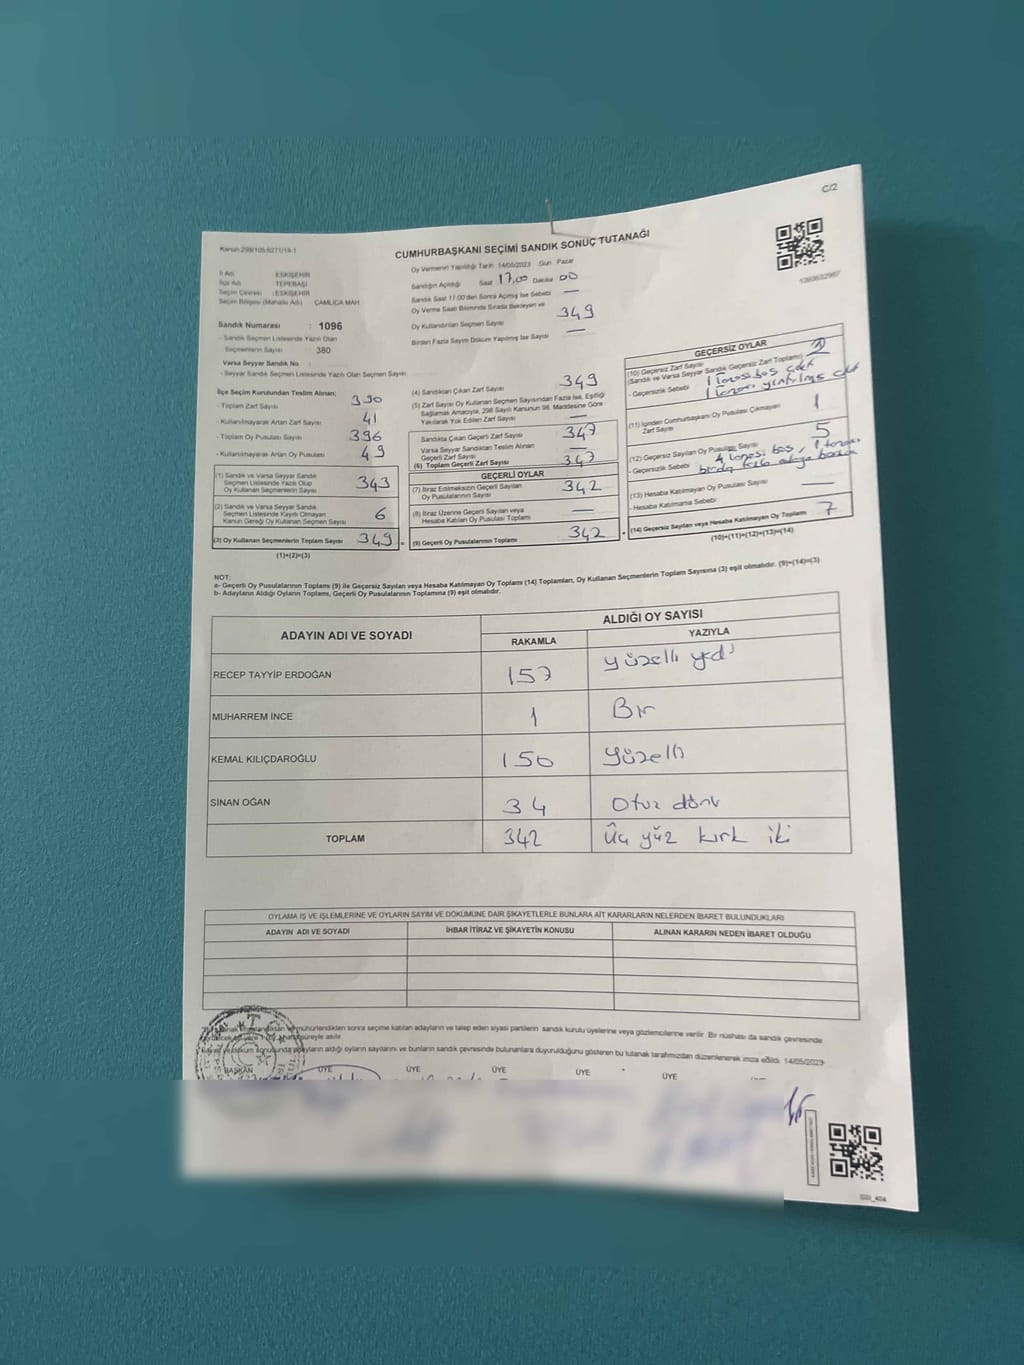 C/2
Kanun:298/105,6271/19-1
CUMHURBAŞKANI SEÇİMİ SANDIK SONUÇ TUTANAĞI
İl Adı : ESKİŞEHİR
İlçe Adı : TEPEBAŞI
Seçim Çevresi : ESKİŞEHİR
Seçim Bölgesi (Mahalle Adı) : ÇAMLICA MAH.
Sandık Numarası : 1096
- Sandık Seçmen Listesinde Yazılı Olan
Seçmenlerin Sayısı : 380
Varsa Seyyar Sandık No :
- Seyyar Sandık Seçmen Listesinde Yazılı Olan Seçmen Sayısı :
Oy Vermenin Yapıldığı Tarih : 14/05/2023 Gün : Pazar
Sandığın Açıldığı Saat 17,00 Dakika 00
Sandık Saat 17.00'den Sonra Açılmış İse Sebebi —
Oy Verme Saati Bitiminde Sırada Bekleyen ve
Oy Kullandırılan Seçmen Sayısı 349
Birden Fazla Sayım Döküm Yapılmış İse Sayısı —
İlçe Seçim Kurulundan Teslim Alınan;
- Toplam Zarf Sayısı 390
- Kullanılmayarak Artan Zarf Sayısı 41
- Toplam Oy Pusulası Sayısı 396
- Kullanılmayarak Artan Oy Pusulası 49
(1) Sandık ve Varsa Seyyar Sandık
Seçmen Listesinde Yazılı Olup
Oy Kullanan Seçmenlerin Sayısı 343
(2) Sandık ve Varsa Seyyar Sandık
Seçmen Listesinde Kayıtlı Olmayan
Kanun Gereği Oy Kullanan Seçmen Sayısı 6
(3) Oy Kullanan Seçmenlerin Toplam Sayısı 349
(1)+(2)=(3)
(4) Sandıktan Çıkan Zarf Sayısı 349
(5) Zarf Sayısı Oy Kullanan Seçmen Sayısından Fazla İse, Eşitliği
Sağlamak Amacıyla, 298 Sayılı Kanunun 98. Maddesine Göre
Yakılarak Yok Edilen Zarf Sayısı —
Sandıkta Çıkan Geçerli Zarf Sayısı 347
Varsa Seyyar Sandıktan Teslim Alınan
Geçerli Zarf Sayısı —
(6) Toplam Geçerli Zarf Sayısı 347
GEÇERLİ OYLAR
(7) İtiraz Edilmeksizin Geçerli Sayılan
Oy Pusulalarının Sayısı 342
(8) İtiraz Üzerine Geçerli Sayılan veya
Hesaba Katılan Oy Pusulası Toplamı —
(9) Geçerli Oy Pusulalarının Toplamı 342
GEÇERSİZ OYLAR
(10) Geçersiz Zarf Sayısı
(Sandık ve Varsa Seyyar Sandık Geçersiz Zarf Toplamı) 2
- Geçersizlik Sebebi 1 tanesi boş çıktı
1 tanesi yırtılmış çıktı
(11) İçinden Cumhurbaşkanı Oy Pusulası Çıkmayan
Zarf Sayısı 1
(12) Geçersiz Sayılan Oy Pusulası Sayısı 5
- Geçersizlik Sebebi 4 tanesi boş, 1 tanesi
birden fazla adaya
(13) Hesaba Katılmayan Oy Pusulası Sayısı —
- Hesaba Katılmama Sebebi
(14) Geçersiz Sayılan veya Hesaba Katılmayan Oy Toplamı 7
(10)+(11)+(12)+(13)=(14)
NOT:
a- Geçerli Oy Pusulalarının Toplamı (9) ile Geçersiz Sayılan veya Hesaba Katılmayan Oy Toplamı (14) Toplamları, Oy Kullanan Seçmenlerin Toplam Sayısına (3) eşit olmalıdır. (9)+(14)=(3)
b- Adayların Aldığı Oyların Toplamı, Geçerli Oy Pusulalarının Toplamına (9) eşit olmalıdır.
ADAYIN ADI VE SOYADI
ALDIĞI OY SAYISI
RAKAMLA YAZIYLA
RECEP TAYYİP ERDOĞAN 157 yüzelli yedi
MUHARREM İNCE 1 Bir
KEMAL KILIÇDAROĞLU 150 yüzelli
SİNAN OĞAN 34 Otuz dört
TOPLAM 342 Üç yüz kırk iki
OYLAMA İŞ VE İŞLEMLERİNE VE OYLARIN SAYIM VE DÖKÜMÜNE DAİR ŞİKAYETLERLE BUNLARA AİT KARARLARIN NELERDEN İBARET BULUNDUKLARI
ADAYIN ADI VE SOYADI İHBAR İTİRAZ VE ŞİKAYETİN KONUSU ALINAN KARARIN NEDEN İBARET OLDUĞU
mühürlendikten sonra seçime katılan adayların ve talep eden siyasi partilerin sandık kurulu üyelerine veya gözlemcilerine verilir. Bir nüshası da sandık çevresinde
süreyle asılır.
sonucunda adayların aldığı oyların sayılarını ve bunların sandık çevresinde bulunanlara duyurulduğunu gösteren bu tutanak tarafımızdan düzenlenerek imza edildi. 14/05/2023
BAŞKAN ÜYE ÜYE ÜYE ÜYE ÜYE